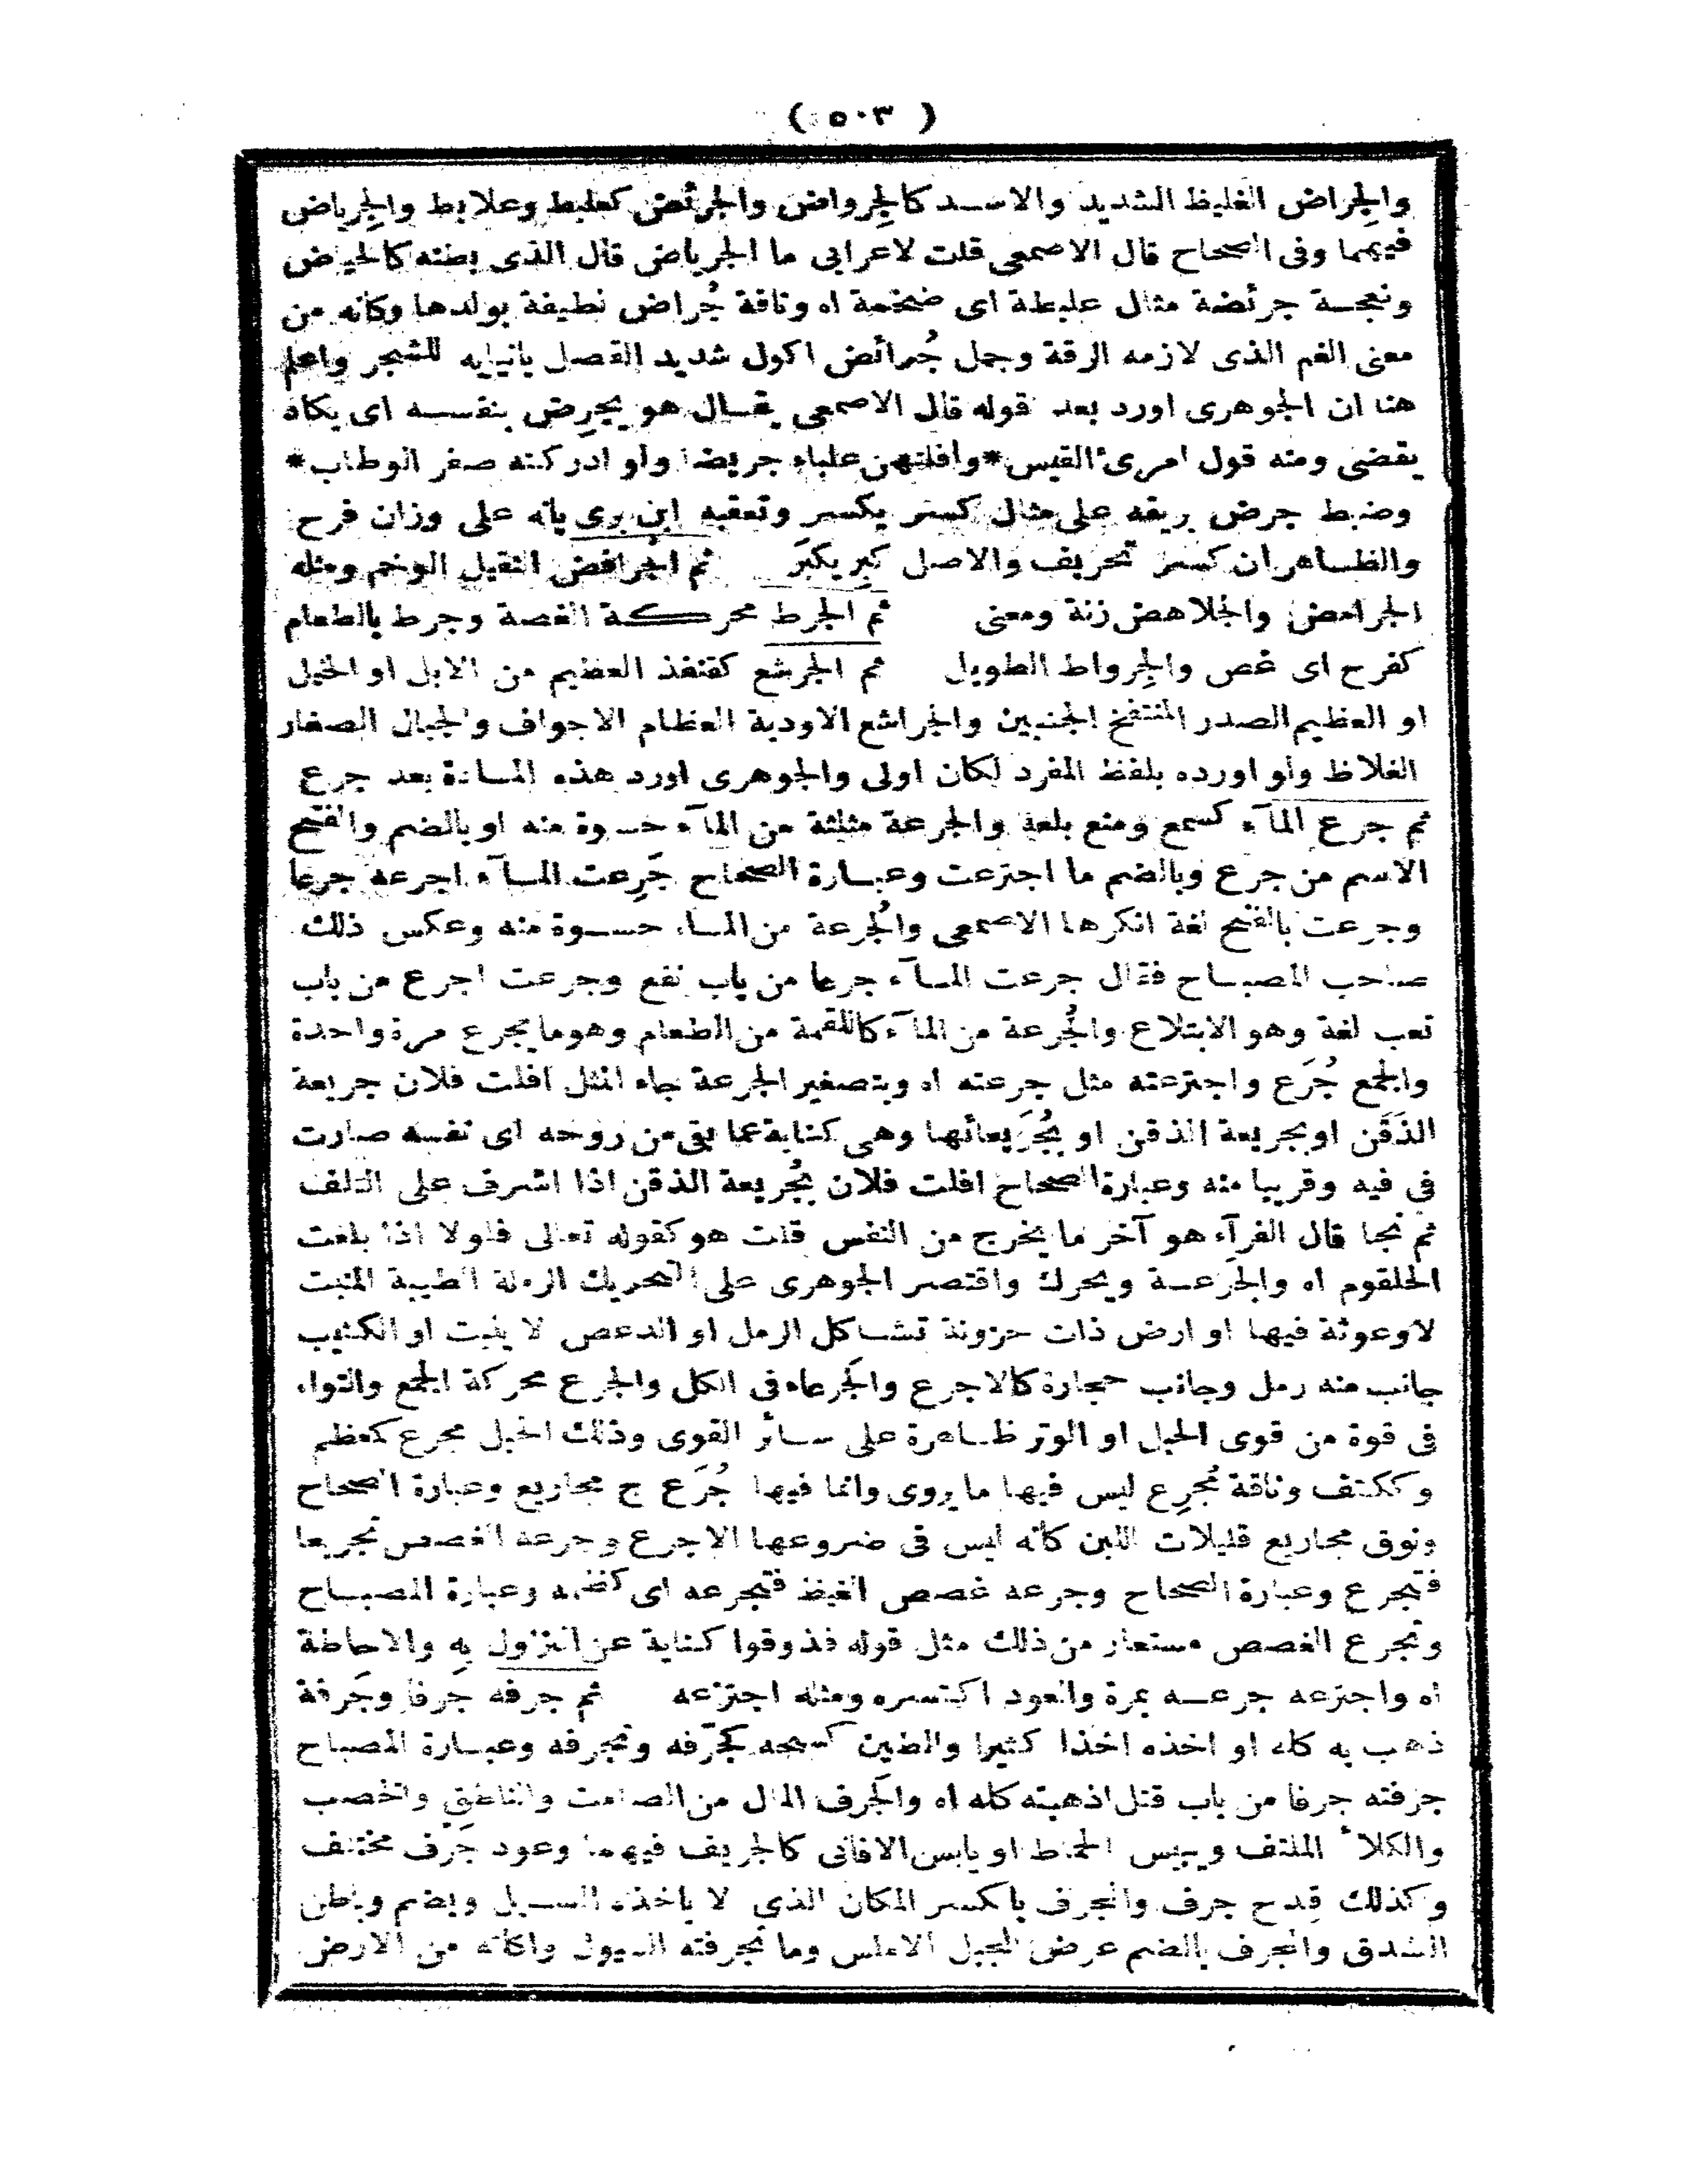 ( ٥٠٣ )
والجِراض الغليظ الشديد والاسد كالجِرواض والجرئض كعلبط وعلابط والجِرياض
فيهما وفى الصحاح قال الاصمعى قلت لاعرابى ما الجرياض قال الذى بطنه كالحياض
ونعجة جرئضة مثال علبطة اى ضخمة اه وناقة جُراض لطيفة بولدها وكانه من
معنى الغم الذى لازمه الرقة وجمل جُرائض اكول شديد القصل بانيابه للشجر واعلم
هنا ان الجوهرى اورد بعد قوله قال الاصمعى يقال هو يجرِض بنفسه اى يكاد
يقضى ومنه قول امرئ القيس *وافلتهن علباء جريضا ولو ادركنه صفر الوطاب*
وضبط جرض بريقه على مثال كسر يكسر وتعقبه ابن برى بانه على وزان فرح
والظاهر ان كسر تحريف والاصل كبِر يكبَر ثم الجرافض الثقيل الوخم ومثله
الجرامض والجلاهض زنة ومعنى ثم الجرط محركة الغصة وجرط بالطعام
كفرح اى غص والجِرواط الطويل ثم الجرشع كقنفذ العظيم من الابل او الخيل
او العظيم الصدر المنتفخ الجنبين والجراشع الاودية العظام الاجواف والجبال الصغار
الغلاظ ولو اورده بلفظ المفرد لكان اولى والجوهرى اورد هذه المادة بعد جرع
ثم جرع المآء كسمع ومنع بلعه والجرعة مثلثة من المآء حسوة منه او بالضم والفتح
الاسم من جرع وبالضم ما اجترعت وعبارة الصحاح جَرِعت المآء اجرعه جرعا
وجرعت بالفتح لغة انكرها الاصمعى والجُرعة من الماء حسوة منه وعكس ذلك
صاحب المصباح فقال جرعت المآء جرعا من باب نفع وجرعت اجرع من باب
تعب لغة وهو الابتلاع والجُرعة من المآء كاللقمة من الطعام وهو ما يجرع مرة واحدة
والجمع جُرَع واجترعته مثل جرعته اه وبتصغير الجرعة جاء المثل افلت فلان جريعة
الذَقَن او بجريعة الذقن او بجُرَيعائها وهى كناية عما بقى من روحه اى نفسه صارت
فى فيه وقريبا منه وعبارة الصحاح افلت فلان بجُريعة الذقن اذا اشرف على التلف
ثم نجا قال الفرآء هو آخر ما يخرج من النفس قلت هو كقوله تعالى فلولا اذا بلغت
الحلقوم اه والجَرعة ويحرك واقتصر الجوهرى على التحريك الرملة الطيبة المنبت
لا وعوثة فيها او ارض ذات حزونة تشاكل الرمل او الدعص لا ينبت او الكثيب
جانب منه رمل وجانب حجارة كالاجرع والجَرعاء فى الكل والجرع محركة الجمع والتواء
فى قوة من قوى الحبل او الوتر ظاهرة على سائر القوى وذلك الحبل مجرع كمعظم
وككتف وناقة مُجرِع ليس فيها ما يروى وانما فيها جُرَع ج مجاريع وعبارة الصحاح
ونوق مجاريع قليلات اللبن كانه ليس فى ضروعها الا جرع وجرعه الغصص تجريعا
فتجرع وعبارة الصحاح وجرعه غصص الغيظ فتجرعه اى كظمه وعبارة المصباح
وتجرع الغصص مستعار من ذلك مثل قوله فذوقوا كناية عن النزول به والاحاطة
اه واجترعه جرعه بمرة والعود اكتسره ومثله اجتزعه ثم جرفه جَرفا وجَرفة
ذهب به كله او اخذه اخذا كثيرا والطين كسحه كجَرّفه وتجرفه وعبارة المصباح
جرفته جرفا من باب قتل اذهبته كله اه والجَرف المال من الصامت والناطق والخصب
والكلأ الملتف ويبيس الحماط او يابس الافانى كالجريف فيهما وعود جَرف مختلف
وكذلك قِدح جرف والجرف بالكسر المكان الذى لا ياخذه السيل ويضم وباطن
الشدق والجرف بالضم عرض الجبل الاملس وما تجرفته السيول واكلته من الارض